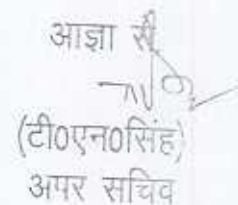 आज्ञा से
(टी0एन0सिंह)
अपर सचिव